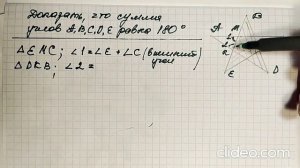 Доказать, что сумма
углов A, B, C, D, E равна 180°
△ EMC; ∠1 = ∠E + ∠C (внешний
угол
△ DKB; ∠2 =
A
M
B
1
2
E
D
clideo.com